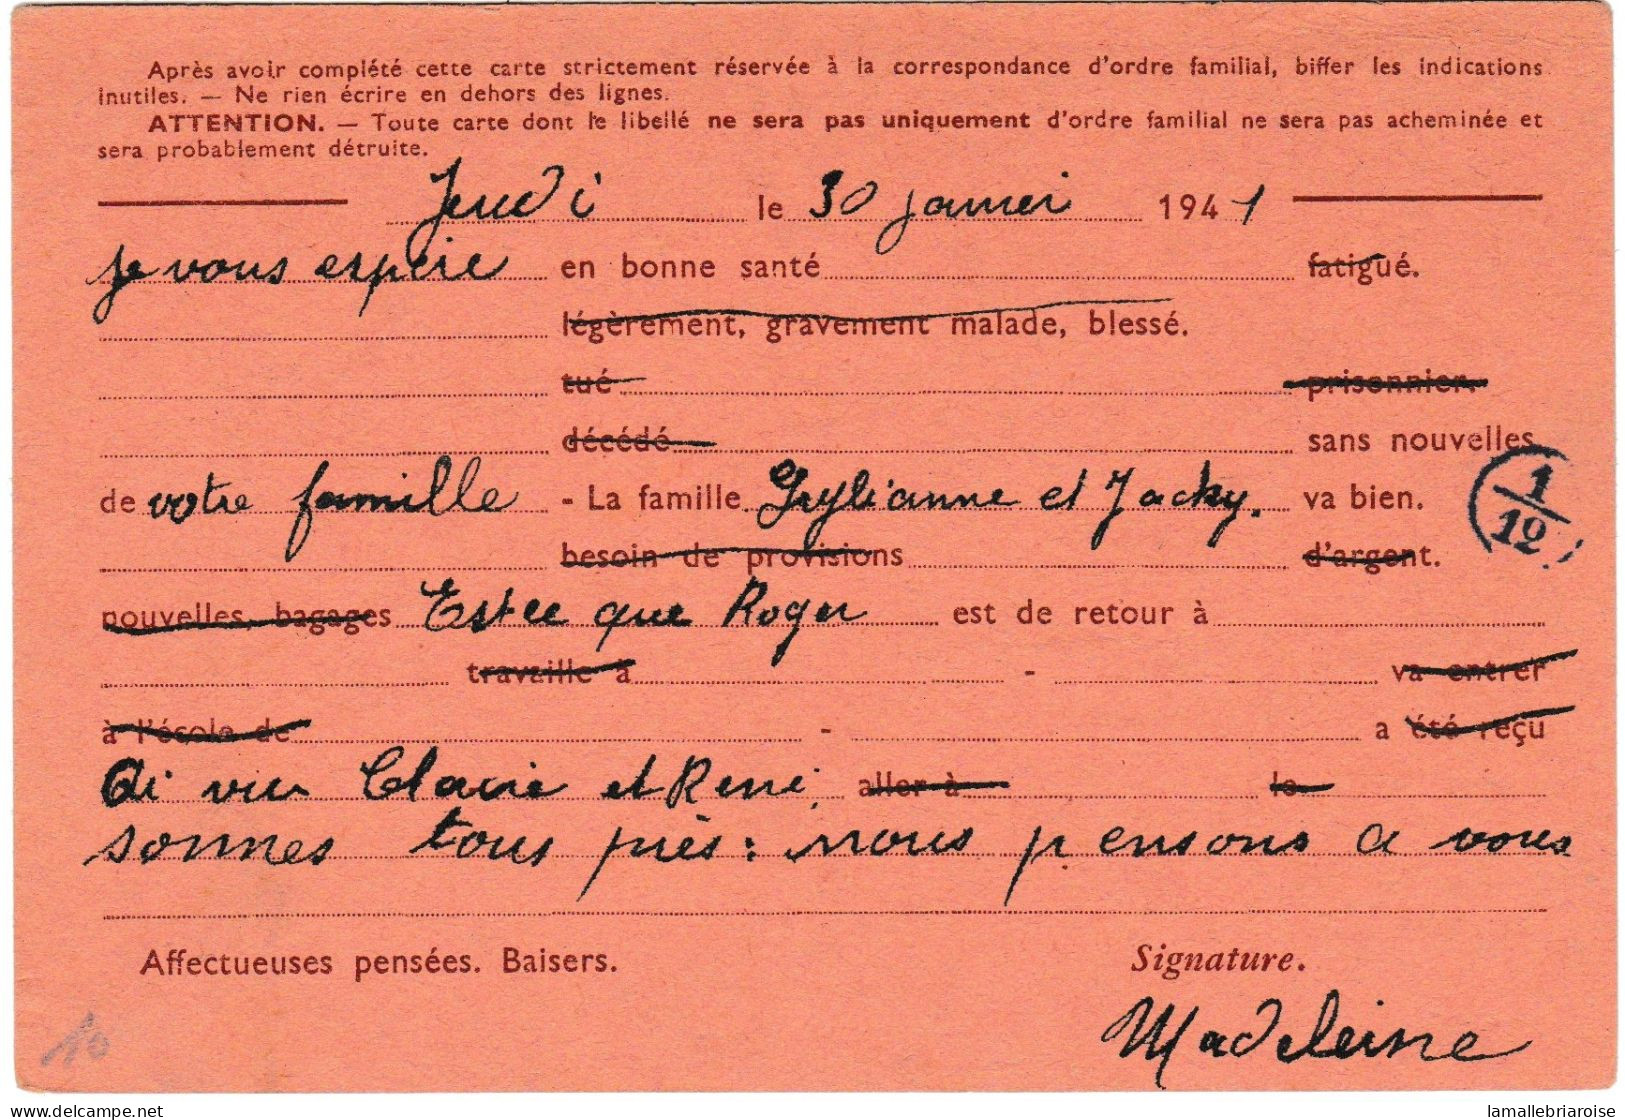 Après avoir complété cette carte strictement réservée à la correspondance d'ordre familial, biffer les indications
inutiles. — Ne rien écrire en dehors des lignes.
ATTENTION. — Toute carte dont le libellé ne sera pas uniquement d'ordre familial ne sera pas acheminée et
sera probablement détruite.
Jeudi le 30 janvier 1941
je vous espère en bonne santé fatigué.
légèrement, gravement malade, blessé.
tué prisonnier.
décédé sans nouvelles
de votre famille - La famille Gylianne et Jacky. va bien.
besoin de provisions d'argent.
nouvelles, bagages Estce que Roger est de retour à
travaille à - va entrer
à l'école de - a été reçu
Ai vu Claire et René. aller à le
sommes tous près : nous pensons a vous
Affectueuses pensées. Baisers. Signature.
Madeleine
1/12
10
www.delcampe.net lamallebriaroise